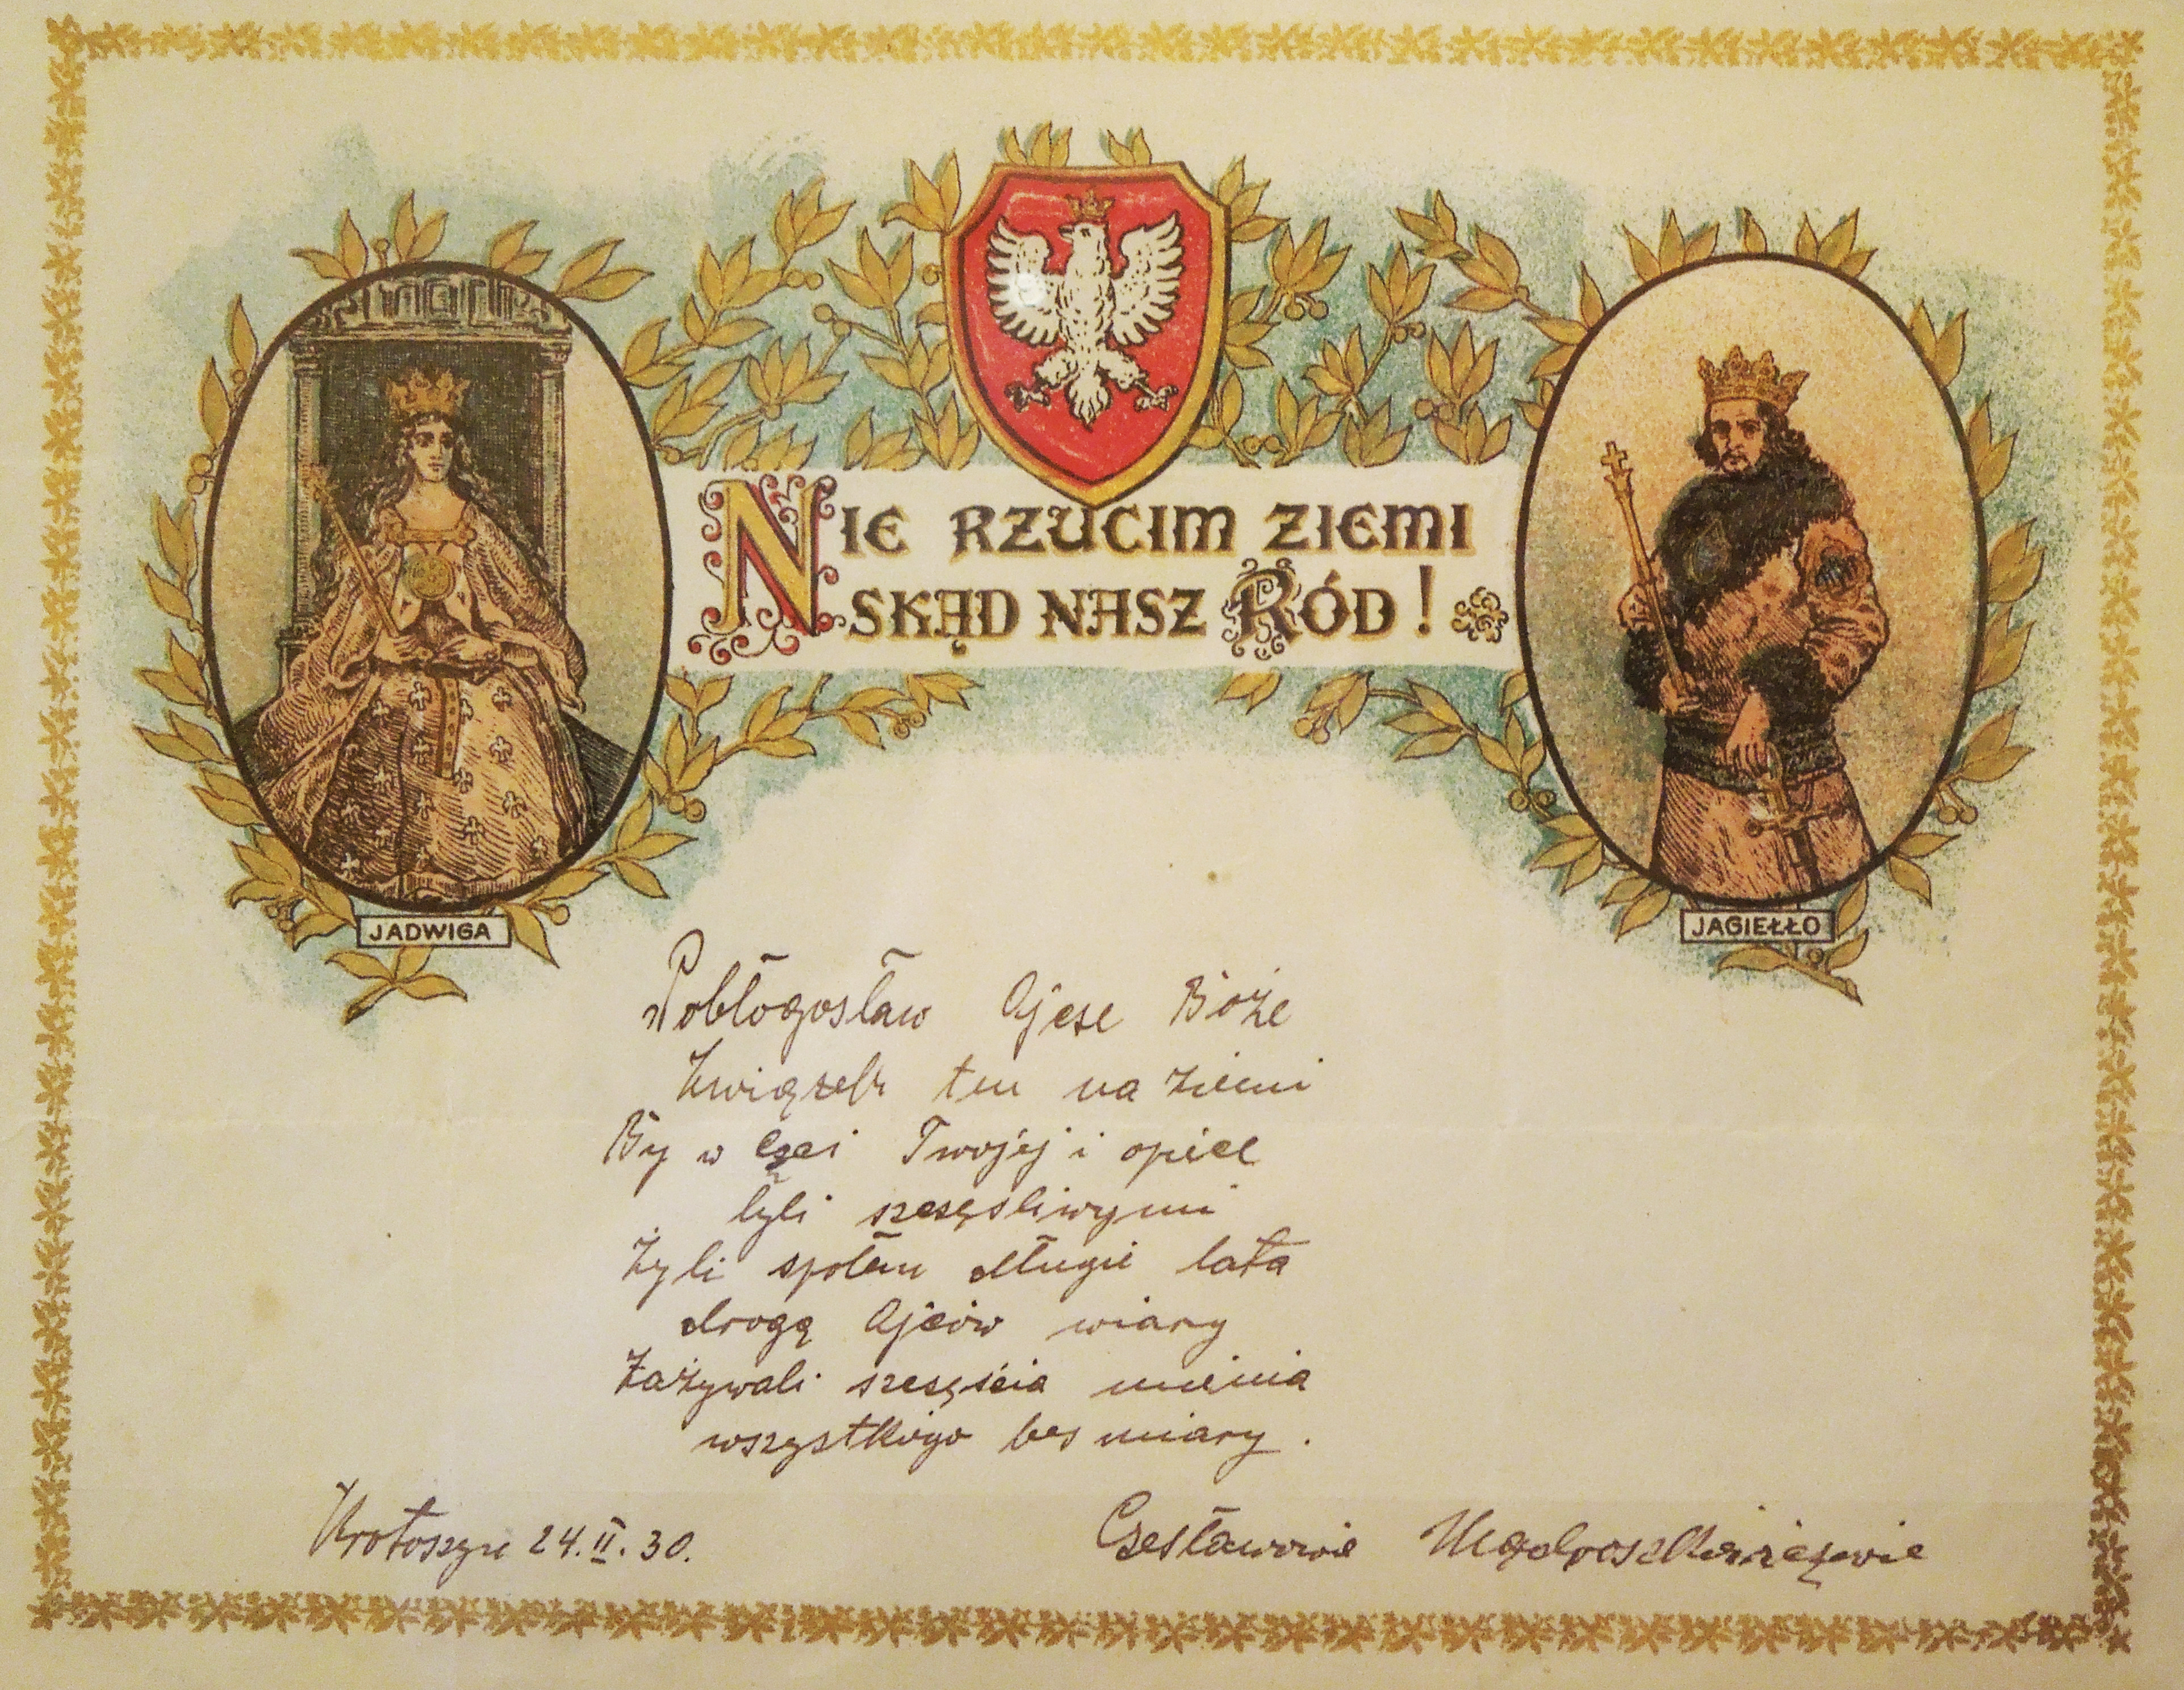 NIE RZUCIM ZIEMI
SKĄD NASZ RÓD!
JADWIGA
JAGIEŁŁO
Pobłogosław Ojcze Boże
Związek ten na ziemi
By w czci Twojej i opiece
byli szczęśliwymi
Żyli społem długie lata
drogą Ojców wiary
Zażywali szczęścia mienia
wszystkiego bez miary.
Krotoszyn 24.II.30.
Czesławowie